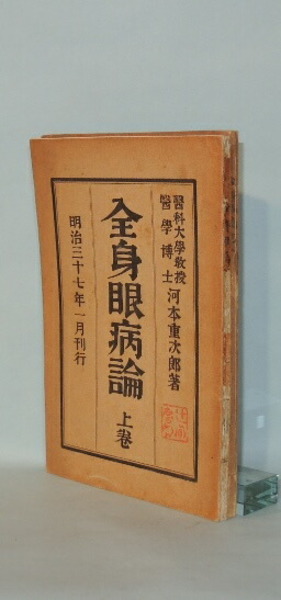 醫科大學敎授
醫學博士 河本重次郎著
全身眼病論 上卷
明治三十七年一月刊行